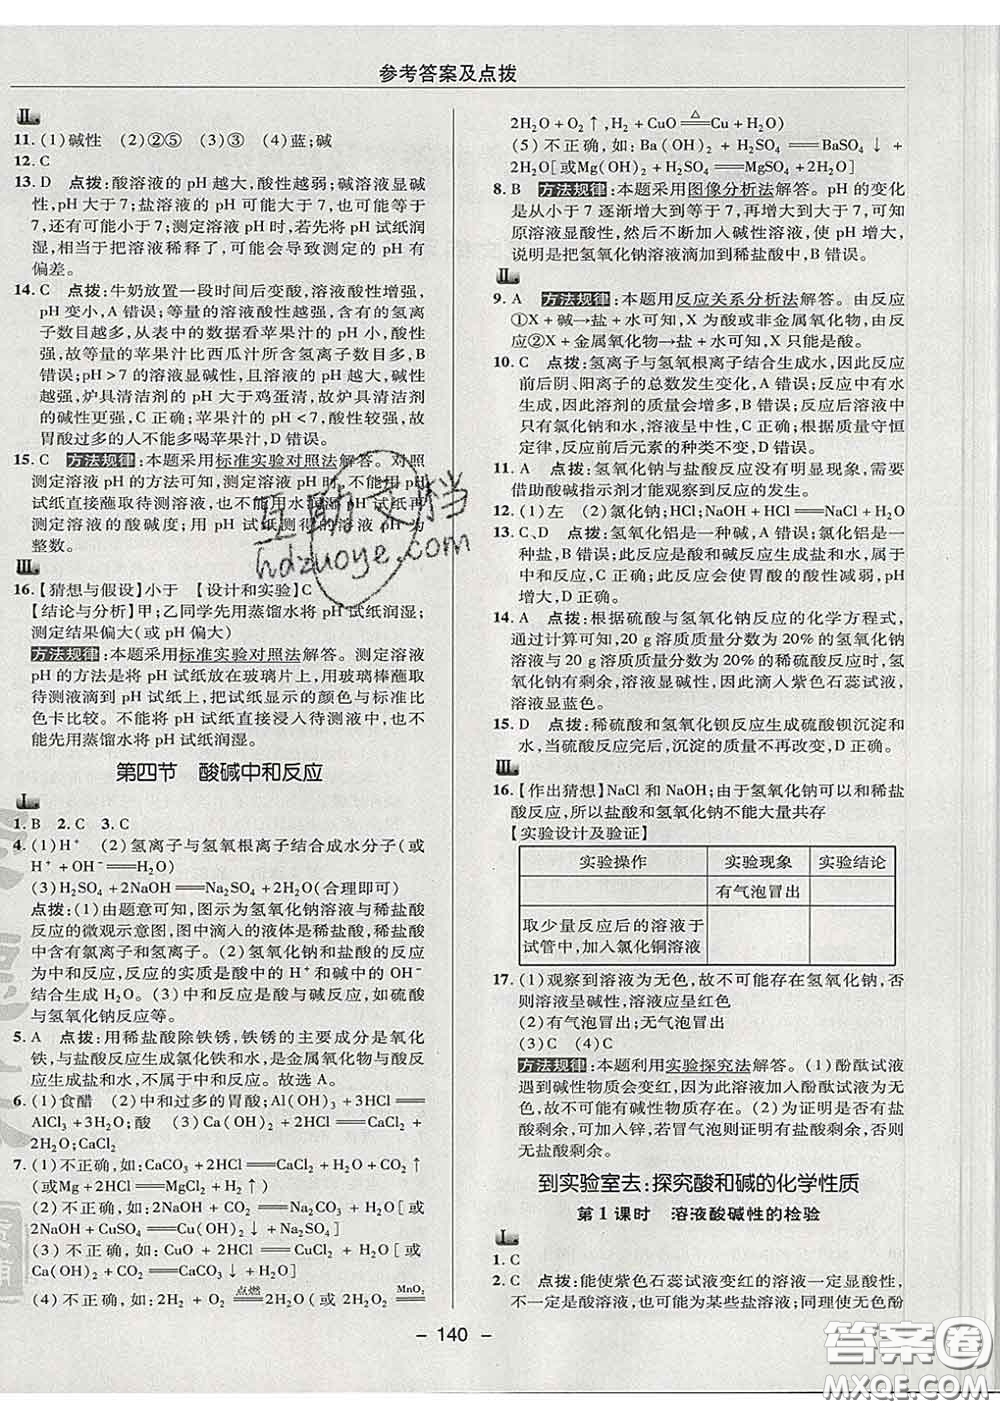 参考答案及点拨
Ⅱ.
11. (1)碱性 (2)②⑤ (3)③ (4)蓝;碱
12. C
13. D 点拨:酸溶液的 pH 越大,酸性越弱;碱溶液显碱
性,pH 大于 7;盐溶液的 pH 可能大于 7,也可能等于
7,还有可能小于 7;测定溶液 pH 时,若先将 pH 试纸润
湿,相当于把溶液稀释了,可能会导致测定的 pH 有
偏差。
14. C 点拨:牛奶放置一段时间后变酸,溶液酸性增强,
pH 变小,A 错误;等量的溶液酸性越强,含有的氢离
子数目越多,从表中的数据看苹果汁的 pH 小,酸性
强,故等量的苹果汁比西瓜汁所含氢离子数目多,B
错误;pH>7 的溶液显碱性,且溶液的 pH 越大,碱性
越强,炉具清洁剂的 pH 大于鸡蛋清,故炉具清洁剂
的碱性更强,C 正确;苹果汁的 pH<7,酸性较强,故
胃酸过多的人不能多喝苹果汁,D 错误。
15. C 方法规律:本题采用标准实验对照法解答。对照
测定溶液 pH 的方法可知,测定时,既不能用 pH
试纸直接蘸取待测溶液,也不能用 pH 试纸来
测定溶液的酸碱度;用 pH 试纸测得的溶液 pH 为
整数。
Ⅲ.
16.【猜想与假设】小于 【设计和实验】C
【结论与分析】甲;乙同学先用蒸馏水将 pH 试纸润湿;
测定结果偏大(或 pH 偏大)
方法规律:本题采用标准实验对照法解答。测定溶液
pH 的方法是将 pH 试纸放在玻璃片上,用玻璃棒蘸取
待测液滴到 pH 试纸上,把试纸显示的颜色与标准比
色卡比较。不能将 pH 试纸直接浸入待测液中,也不
能先用蒸馏水将 pH 试纸润湿。
第四节 酸碱中和反应
Ⅰ.
1. B 2. C 3. C
4. (1)H⁺ (2)氢离子与氢氧根离子结合成水分子(或
H⁺+OH⁻══H₂O)
(3)H₂SO₄+2NaOH══Na₂SO₄+2H₂O(合理即可)
点拨:(1)由题意可知,图示为氢氧化钠溶液与稀盐酸
反应的微观示意图,图中滴入的液体是稀盐酸,稀盐酸
中含有氯离子和氢离子。(2)氢氧化钠和盐酸的反应
为中和反应,反应的实质是酸中的 H⁺和碱中的 OH⁻
结合生成 H₂O。(3)中和反应是酸与碱反应,如硫酸
与氢氧化钠反应等。
5. A 点拨:用稀盐酸除铁锈,铁锈的主要成分是氧化
铁,与盐酸反应生成氯化铁和水,是金属氧化物与酸反
应生成盐和水,不属于中和反应。故选 A。
6. (1)食醋 (2)中和过多的胃酸;Al(OH)₃+3HCl══
AlCl₃+3H₂O;酸 (3)Ca(OH)₂+2HCl══CaCl₂+
2H₂O;CaCl₂
7. (1)不正确,如:CaCO₃+2HCl══CaCl₂+H₂O+CO₂↑
(或Mg+2HCl══MgCl₂+H₂↑)
(2)不正确,如:2NaOH+CO₂══Na₂CO₃+H₂O(或
2NaOH+CuSO₄══Cu(OH)₂↓+Na₂SO₄)
(3)不正确,如:CuO+2HCl══CuCl₂+H₂O[或
Ca(OH)₂+CO₂══CaCO₃↓+H₂O]
(4)不正确,如:2H₂+O₂ 点燃══ 2H₂O(或 2H₂O₂ MnO₂══
2H₂O+O₂↑,H₂+CuO △══ Cu+H₂O)
(5)不正确,如:Ba(OH)₂+H₂SO₄══BaSO₄↓+
2H₂O[或Mg(OH)₂+H₂SO₄══MgSO₄+2H₂O]
8. B 方法规律:本题采用图像分析法解答。pH 的变化
是从小于 7 逐渐增大到等于 7,再增大到大于 7,可知
原溶液显酸性,然后不断加入碱性溶液,使 pH 增大,
说明是把氢氧化钠溶液滴加到稀盐酸中,B 错误。
Ⅱ.
9. A 方法规律:本题用反应关系分析法解答。由反应
①X+碱→盐+水可知,X 为酸或非金属氧化物,由反
应②X+金属氧化物→盐+水可知,X 只能是酸。
10. C 点拨:氢离子与氢氧根离子结合生成水,因此反应
前后阴、阳离子的总数发生变化,A 错误;反应中有水
生成,因此溶剂的质量会增多,B 错误;反应后溶液中
只有氯化钠和水,溶液呈中性,C 正确;根据质量守恒
定律,反应前后元素的种类不变,D 错误。
11. A 点拨:氢氧化钠与盐酸反应没有明显现象,需要
借助酸碱指示剂才能观察到反应的发生。
12. (1)左 (2)氯化钠;HCl;NaOH+HCl══NaCl+H₂O
13. C、D 点拨:氢氧化铝是一种碱,A 错误;氯化铝是一
种盐,B 错误;此反应是酸与碱反应生成盐和水,属于
中和反应,C 正确;此反应会使胃酸的酸性减弱,pH
增大,D 正确。
14. A 点拨:根据硫酸与氢氧化钠反应的化学方程式,
通过计算可知,20 g 溶质质量分数为 20%的氢氧化钠
溶液与 20 g 溶质质量分数为 20%的稀硫酸反应,氢
氧化钠有剩余,溶液显碱性,因此滴入紫色石蕊试液,
溶液显蓝色。
15. D 点拨:稀硫酸和氢氧化钡反应生成硫酸钡沉淀和
水,当硫酸反应完后,沉淀的质量不再改变,D 正确。
Ⅲ.
16.【作出猜想】NaCl 和 NaOH;由于氢氧化钠可以和稀盐
酸反应,所以盐酸和氢氧化钠不能大量共存
【实验设计及验证】
实验操作 实验现象 实验结论
有气泡冒出
取少量反应后的溶液于
试管中,加入氯化铜溶液
17. (1)观察到溶液为无色,故不可能存在氢氧化钠,否
则溶液呈碱性,溶液应呈红色
(2)有气泡冒出;无气泡冒出
(3)C (4)C
方法规律:本题利用实验探究法解答。(1)酚酞试液
遇到碱性物质会变红,因此溶液加入酚酞试液为无色
时,不可能有碱性物质存在。(2)为证明是否有盐
酸剩余,可加入锌,若冒气泡则证明有盐酸剩余,否则
无盐酸剩余。
到实验室去:探究酸和碱的化学性质
第 1 课时 溶液酸碱性的检验
Ⅰ.
1. C
2. C 点拨:能使紫色石蕊试液变红的溶液一定显酸性,
不一定是酸溶液,也可能为某些盐溶液;同理使无色酚
– 140 –
互助文档
hdzuoye.com
答案圈
MXQE.COM